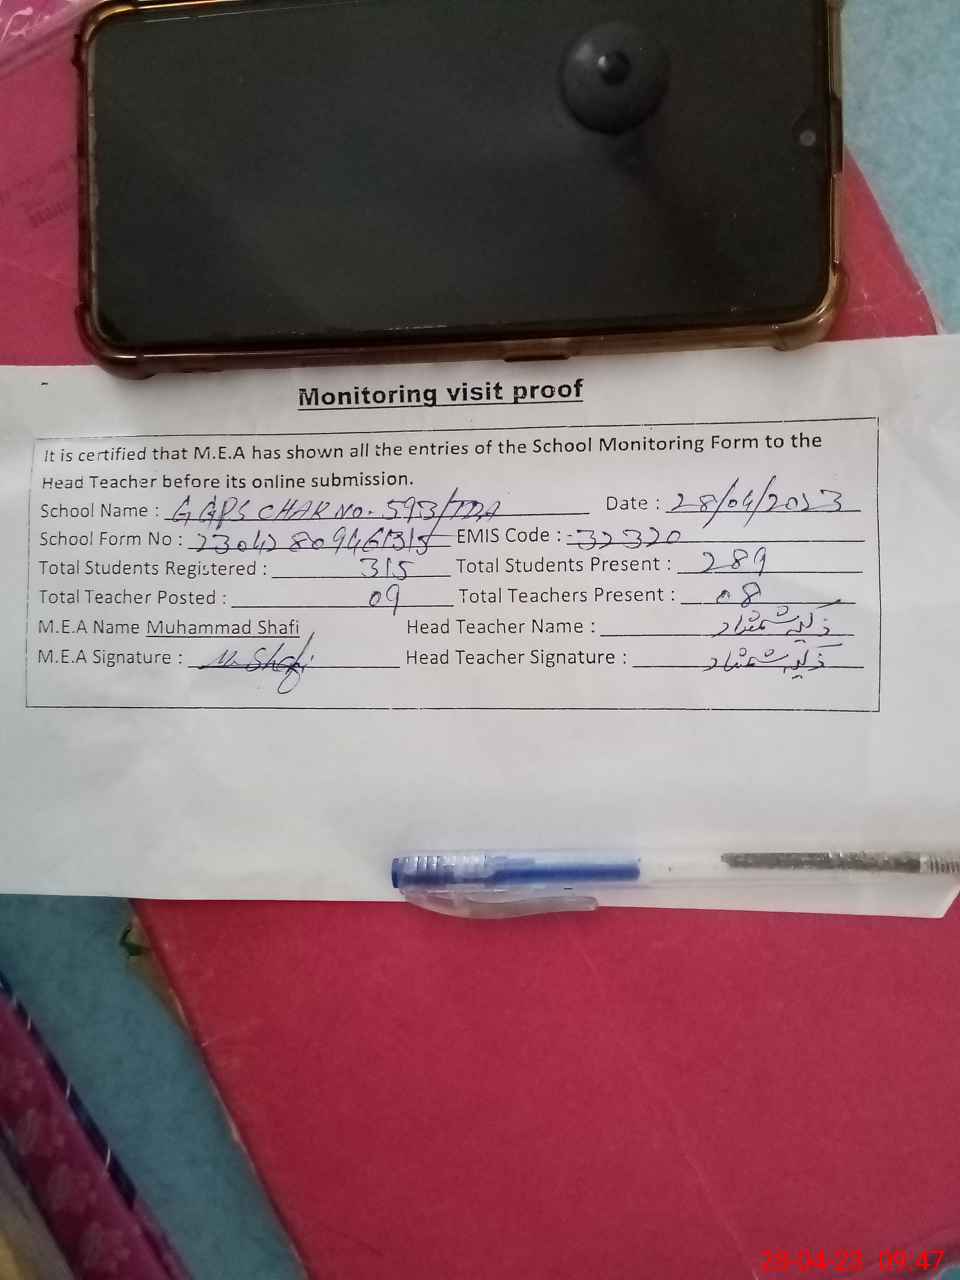 Monitoring visit proof
It is certified that M.E.A has shown all the entries of the School Monitoring Form to the
Head Teacher before its online submission.
School Name : GGPS CHAK NO. 593/TDA Date : 28/04/2023
School Form No : EMIS Code : 32320
Total Students Registered : 315 Total Students Present : 289
Total Teacher Posted : 09 Total Teachers Present : 08
M.E.A Name Muhammad Shafi Head Teacher Name : ذکیہ شمشاد
M.E.A Signature : M. Shafi Head Teacher Signature : ذکیہ شمشاد
28-04-23 09:47